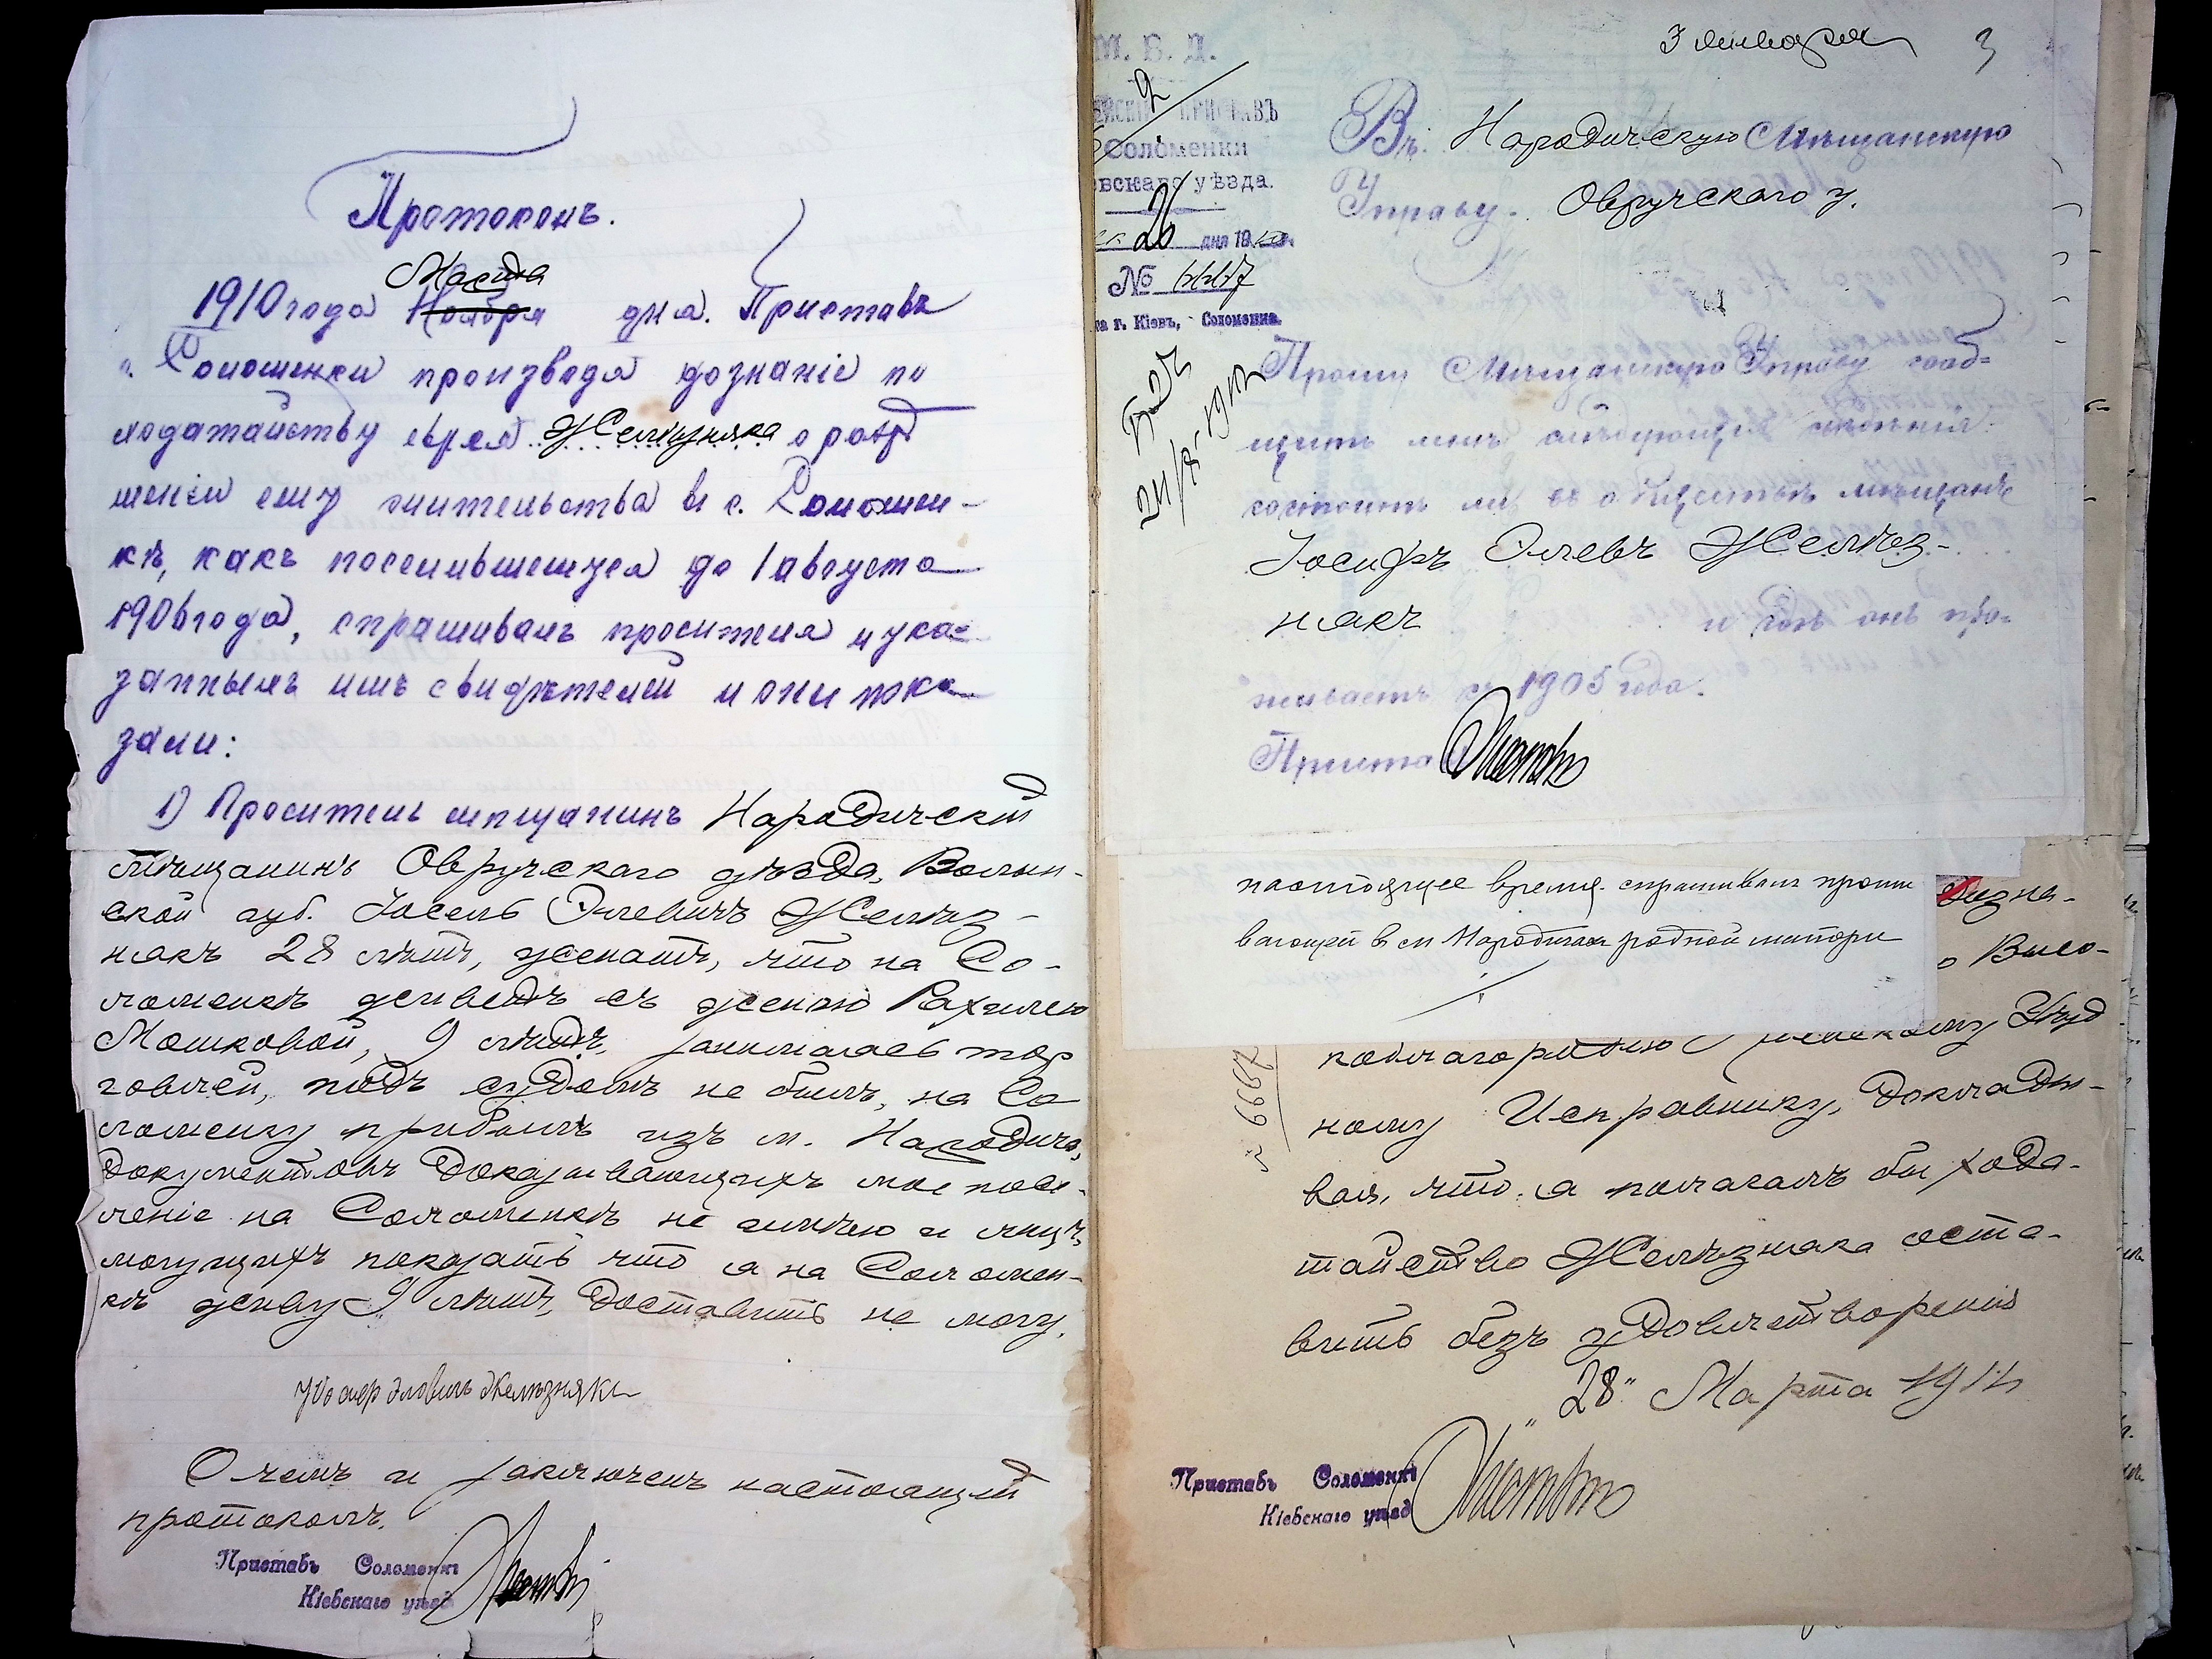 Протоколъ.
Марта
1910 года Ноября дня. Приставъ
с. Соломенки производя дознаніе по
ходатайству еврея Желѣзняка о разр
шеніи ему жительства въ с. Соломен-
кѣ, какъ поселившемуся до 1 августа
1906 года, спрашивалъ просителя и ука-
занныхъ имъ свидѣтелей и они пока-
зали:
1) Проситель мѣщанинъ Народичскій
мѣщанинъ Овручскаго уѣзда, Волын-
ской губ. Іосель Элевичъ Желѣз-
някъ 28 лѣтъ, женатъ, что на Со-
ломенкѣ живетъ съ женою Рахилею
Мошковой, 9 лѣтъ, занимаясь тор
говлей, подъ судомъ не былъ, на Со
ломенку прибылъ изъ м. Народичъ,
документовъ доказывающихъ мое посе-
леніе на Соломенкѣ не имѣю и лицъ,
могущихъ показать что я на Соломен-
кѣ живу 9 лѣтъ, доставить не могу.
Элевичъ Желѣзнякъ
О чемъ и заключенъ настоящій
протоколъ.
Приставъ Соломенки
Кіевскаго уѣзд
3 января 3
М. В. Д.
ПРИСТАВЪ
Соломенки
евскаго уѣзда.
26 дня 1910 г.
№
г. Кіевъ, Соломенка.
Въ Народичскую Мѣщанскую
Управу. Овручскаго у.
Прошу Мѣщанскую Управу сооб-
щить мнѣ слѣдующія свѣдѣнія:
состоитъ ли въ обществѣ мѣщанъ
Іосифъ Элевъ Желѣз-
някъ и гдѣ онъ про-
живаетъ съ 1905 года.
Приста
настоящее время. спрашивалъ прожи
вающей в м Народичахъ родной матери
Высо-
коблагородію Кіевскому Уѣзд
ному Исправнику, докладыв-
вая, что я полагалъ бы хода-
тайство Желѣзняка оста-
вить безъ удовлетворенія
"28" Марта 191
Приставъ Соломенки
Кіевскаго уѣзд